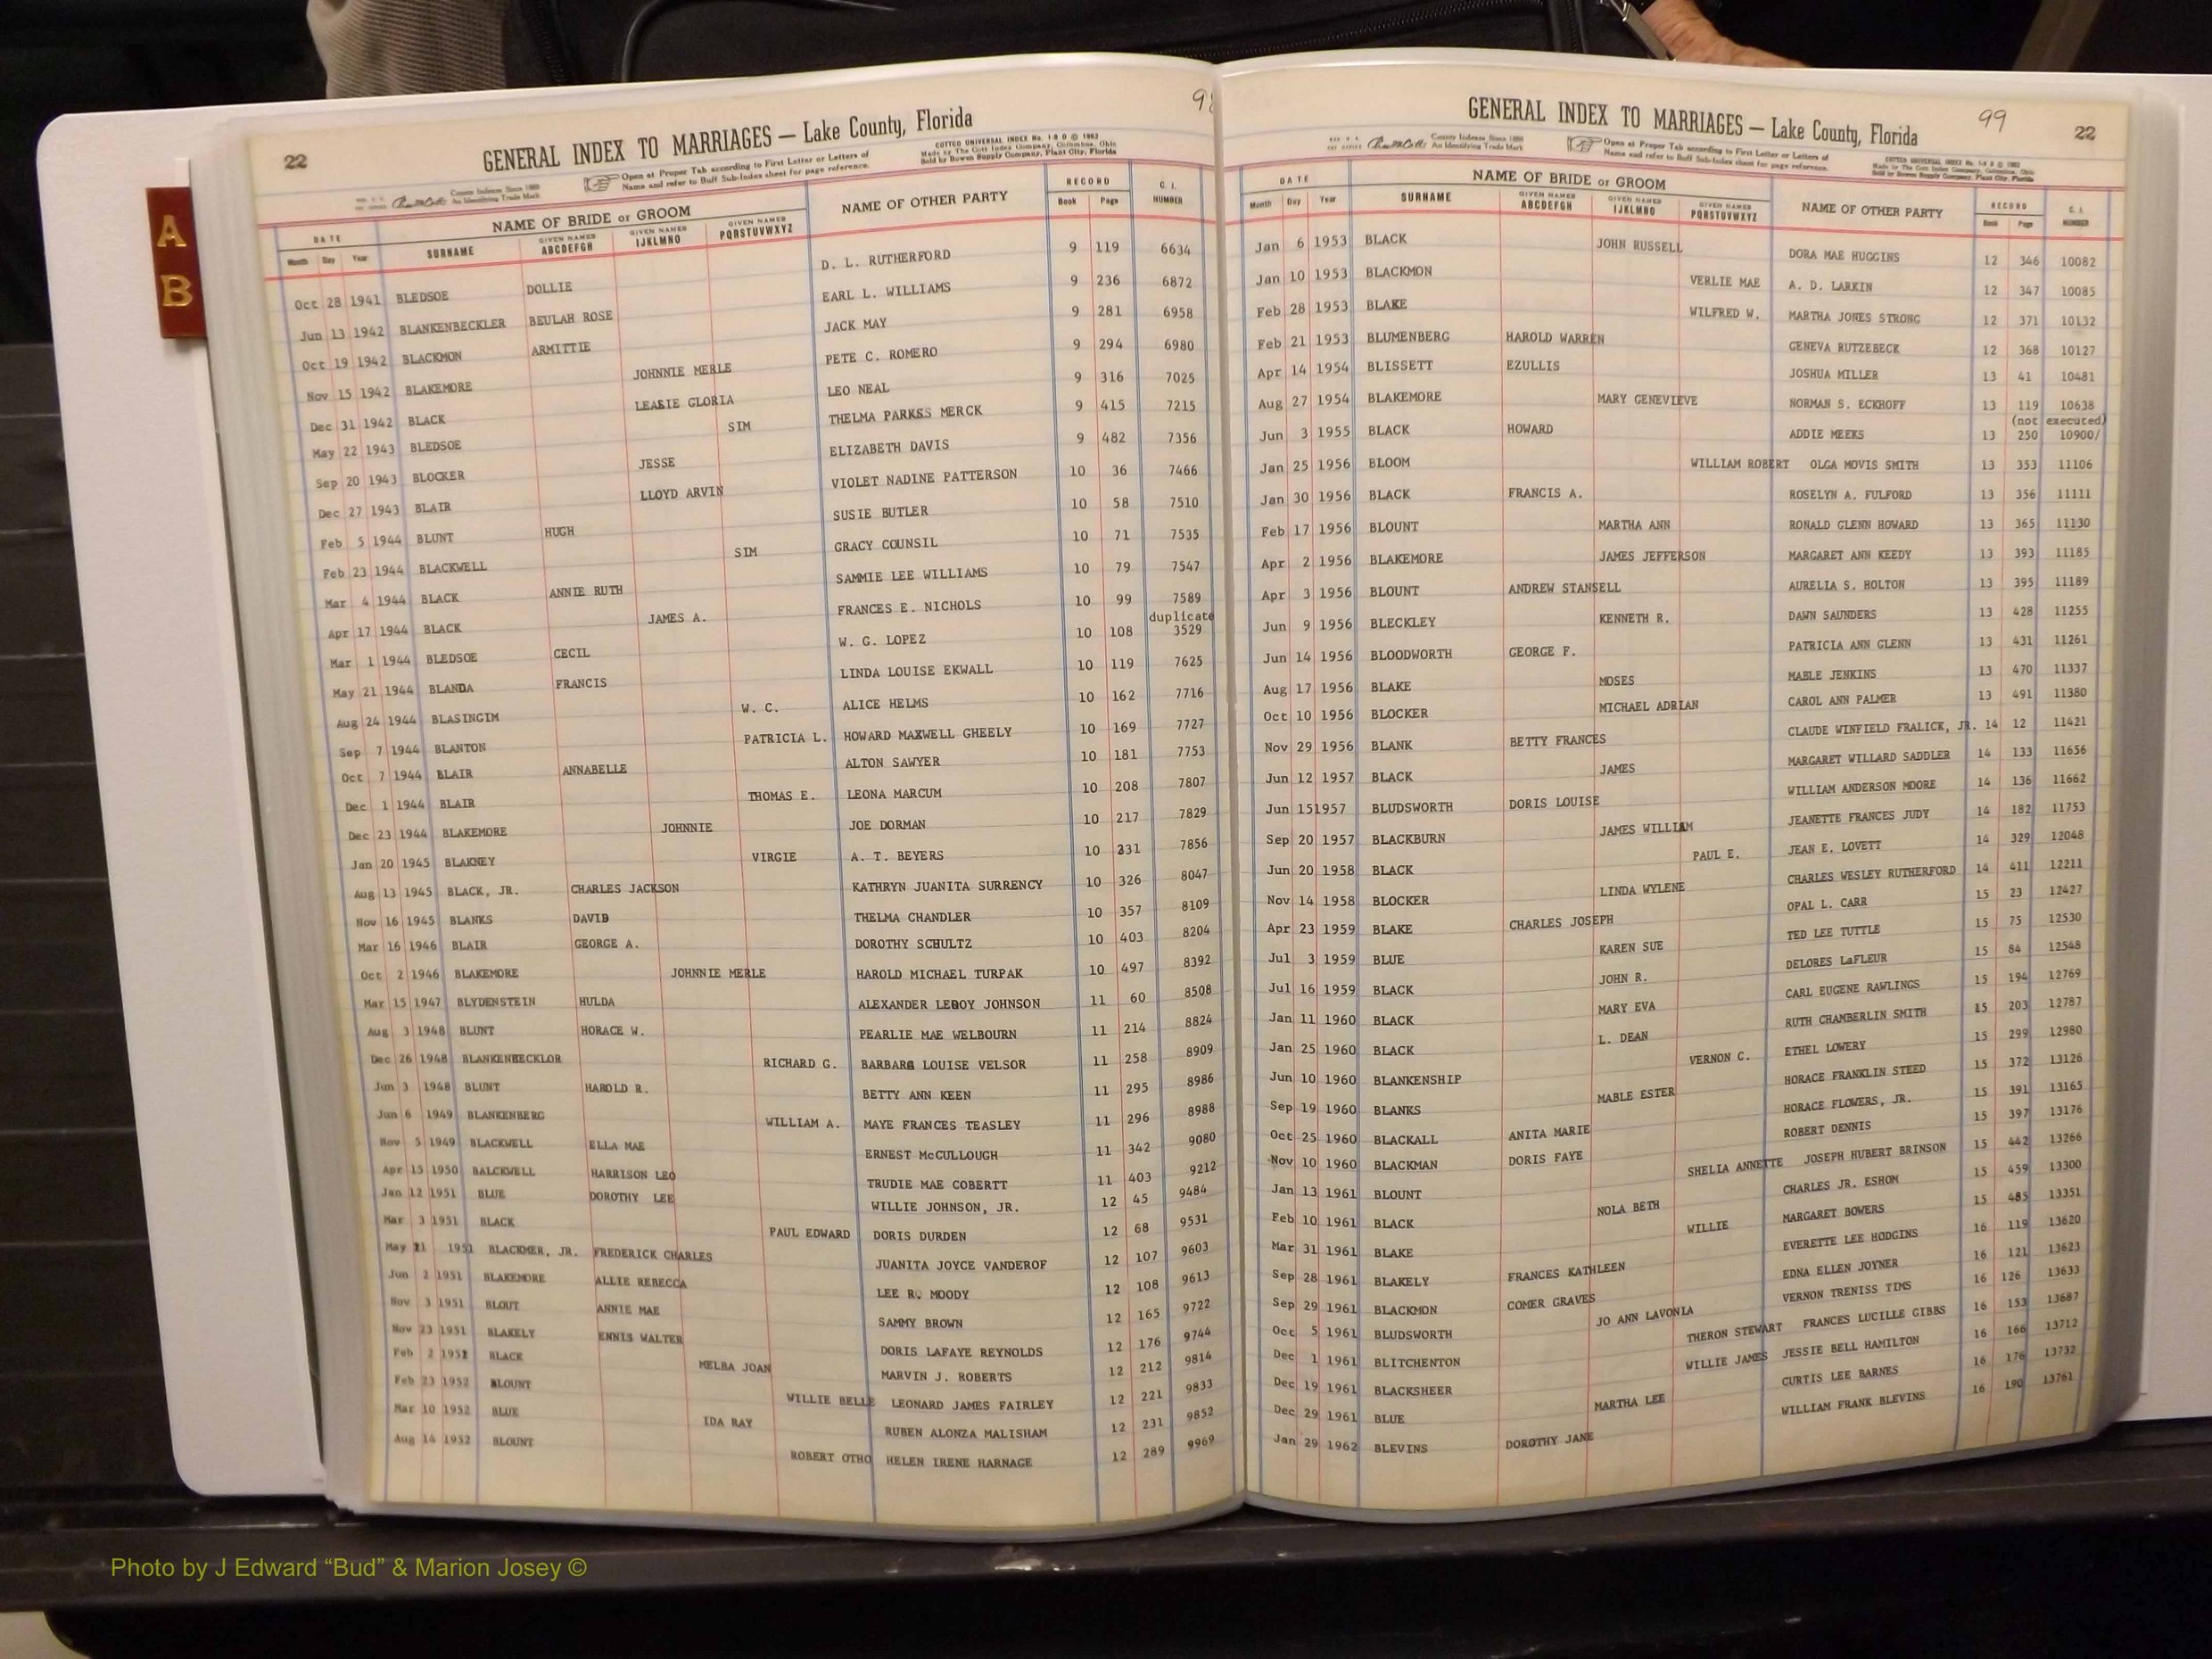 A
B
22
GENERAL INDEX TO MARRIAGES — Lake County, Florida
COTTCO UNIVERSAL INDEX
Made by The Cott Index Company, Columbus, Ohio
Sold by Bowen Supply Company, Plant City, Florida
County Indexes Since 1888
An Identifying Trade Mark
Open at Proper Tab according to First Letter or Letters of
Name and refer to Buff Sub-Index sheet for page reference.
DATE NAME OF BRIDE or GROOM NAME OF OTHER PARTY RECORD C. I. NUMBER
Month Day Year SURNAME GIVEN NAMES ABCDEFGH GIVEN NAMES IJKLMNO GIVEN NAMES PQRSTUVWXYZ Book Page
Oct 28 1941 BLEDSOE DOLLIE D. L. RUTHERFORD 9 119 6634
Jun 13 1942 BLANKENBECKLER BEULAH ROSE EARL L. WILLIAMS 9 236 6872
Oct 19 1942 BLACKMON ARMITTIE JACK MAY 9 281 6958
Nov 15 1942 BLAKEMORE JOHNNIE MERLE PETE C. ROMERO 9 294 6980
Dec 31 1942 BLACK LEASIE GLORIA LEO NEAL 9 316 7025
May 22 1943 BLEDSOE SIM THELMA PARKSS MERCK 9 415 7215
Sep 20 1943 BLOCKER JESSE ELIZABETH DAVIS 9 482 7356
Dec 27 1943 BLAIR LLOYD ARVIN VIOLET NADINE PATTERSON 10 36 7466
Feb 5 1944 BLUNT HUGH SUSIE BUTLER 10 58 7510
Feb 23 1944 BLACKWELL SIM GRACY COUNSIL 10 71 7535
Mar 4 1944 BLACK ANNIE RUTH SAMMIE LEE WILLIAMS 10 79 7547
Apr 17 1944 BLACK JAMES A. FRANCES E. NICHOLS 10 99 7589
duplicate
Mar 1 1944 BLEDSOE CECIL W. G. LOPEZ 10 108 3529
May 21 1944 BLANDA FRANCIS LINDA LOUISE EKWALL 10 119 7625
Aug 24 1944 BLASINGIM W. C. ALICE HELMS 10 162 7716
Sep 7 1944 BLANTON PATRICIA L. HOWARD MAXWELL GHEELY 10 169 7727
Oct 7 1944 BLAIR ANNABELLE ALTON SAWYER 10 181 7753
Dec 1 1944 BLAIR THOMAS E. LEONA MARCUM 10 208 7807
Dec 23 1944 BLAKEMORE JOHNNIE JOE DORMAN 10 217 7829
Jan 20 1945 BLAKNEY VIRGIE A. T. BEYERS 10 231 7856
Aug 13 1945 BLACK, JR. CHARLES JACKSON KATHRYN JUANITA SURRENCY 10 326 8047
Nov 16 1945 BLANKS DAVID THELMA CHANDLER 10 357 8109
Mar 16 1946 BLAIR GEORGE A. DOROTHY SCHULTZ 10 403 8204
Oct 2 1946 BLAKEMORE JOHNNIE MERLE HAROLD MICHAEL TURPAK 10 497 8392
Mar 15 1947 BLYDENSTEIN HULDA ALEXANDER LEROY JOHNSON 11 60 8508
Aug 3 1948 BLUNT HORACE W. PEARLIE MAE WELBOURN 11 214 8824
Dec 26 1948 BLANKENBECKLOR RICHARD G. BARBARA LOUISE VELSOR 11 258 8909
Jun 3 1948 BLUNT HAROLD R. BETTY ANN KEEN 11 295 8986
Jun 6 1949 BLANKENBERG WILLIAM A. MAYE FRANCES TEASLEY 11 296 8988
Nov 5 1949 BLACKWELL ELLA MAE ERNEST McCULLOUGH 11 342 9080
Apr 15 1950 BALCKWELL HARRISON LEO TRUDIE MAE COBERTT 11 403 9212
Jan 12 1951 BLUE DOROTHY LEE WILLIE JOHNSON, JR. 12 45 9484
Mar 3 1951 BLACK PAUL EDWARD DORIS DURDEN 12 68 9531
May 21 1951 BLACKMER, JR. FREDERICK CHARLES JUANITA JOYCE VANDEROF 12 107 9603
Jun 2 1951 BLAKEMORE ALLIE REBECCA LEE R. MOODY 12 108 9613
Nov 3 1951 BLOUT ANNIE MAE SAMMY BROWN 12 165 9722
Nov 23 1951 BLAKELY ENNIS WALTER DORIS LAFAYE REYNOLDS 12 176 9744
Feb 2 1952 BLACK MELBA JOAN MARVIN J. ROBERTS 12 212 9814
Feb 23 1952 BLOUNT WILLIE BELLE LEONARD JAMES FAIRLEY 12 221 9833
Mar 10 1952 BLUE IDA RAY RUBEN ALONZA MALISHAM 12 231 9852
Aug 14 1952 BLOUNT ROBERT OTHO HELEN IRENE HARNAGE 12 289 9969
99
22
GENERAL INDEX TO MARRIAGES — Lake County, Florida
County Indexes Since 1888
An Identifying Trade Mark
Open at Proper Tab according to First Letter or Letters of
Name and refer to Buff Sub-Index sheet for page reference.
COTTCO UNIVERSAL INDEX
Made by The Cott Index Company, Columbus, Ohio
Sold by Bowen Supply Company, Plant City, Florida
DATE NAME OF BRIDE or GROOM NAME OF OTHER PARTY RECORD C. I. NUMBER
Month Day Year SURNAME GIVEN NAMES ABCDEFGH GIVEN NAMES IJKLMNO GIVEN NAMES PQRSTUVWXYZ Book Page
Jan 6 1953 BLACK JOHN RUSSELL DORA MAE HUGGINS 12 346 10082
Jan 10 1953 BLACKMON VERLIE MAE A. D. LARKIN 12 347 10085
Feb 28 1953 BLAKE WILFRED W. MARTHA JONES STRONG 12 371 10132
Feb 21 1953 BLUMENBERG HAROLD WARREN GENEVA RUTZEBECK 12 368 10127
Apr 14 1954 BLISSETT EZULLIS JOSHUA MILLER 13 41 10481
Aug 27 1954 BLAKEMORE MARY GENEVIEVE NORMAN S. ECKHOFF 13 119 10638
(not executed)
Jun 3 1955 BLACK HOWARD ADDIE MEEKS 13 250 10900/
Jan 25 1956 BLOOM WILLIAM ROBERT OLGA MOVIS SMITH 13 353 11106
Jan 30 1956 BLACK FRANCIS A. ROSELYN A. FULFORD 13 356 11111
Feb 17 1956 BLOUNT MARTHA ANN RONALD GLENN HOWARD 13 365 11130
Apr 2 1956 BLAKEMORE JAMES JEFFERSON MARGARET ANN KEEDY 13 393 11185
Apr 3 1956 BLOUNT ANDREW STANSELL AURELIA S. HOLTON 13 395 11189
Jun 9 1956 BLECKLEY KENNETH R. DAWN SAUNDERS 13 428 11255
Jun 14 1956 BLOODWORTH GEORGE F. PATRICIA ANN GLENN 13 431 11261
Aug 17 1956 BLAKE MOSES MABLE JENKINS 13 470 11337
Oct 10 1956 BLOCKER MICHAEL ADRIAN CAROL ANN PALMER 13 491 11380
Nov 29 1956 BLANK BETTY FRANCES CLAUDE WINFIELD FRALICK, JR. 14 12 11421
Jun 12 1957 BLACK JAMES MARGARET WILLARD SADDLER 14 133 11656
Jun 151957 BLUDSWORTH DORIS LOUISE WILLIAM ANDERSON MOORE 14 136 11662
Sep 20 1957 BLACKBURN JAMES WILLIAM JEANETTE FRANCES JUDY 14 182 11753
Jun 20 1958 BLACK PAUL E. JEAN E. LOVETT 14 329 12048
Nov 14 1958 BLOCKER LINDA WYLENE CHARLES WESLEY RUTHERFORD 14 411 12211
Apr 23 1959 BLAKE CHARLES JOSEPH OPAL L. CARR 15 23 12427
Jul 3 1959 BLUE KAREN SUE TED LEE TUTTLE 15 75 12530
Jul 16 1959 BLACK JOHN R. DELORES LaFLEUR 15 84 12548
Jan 11 1960 BLACK MARY EVA CARL EUGENE RAWLINGS 15 194 12769
Jan 25 1960 BLACK L. DEAN RUTH CHAMBERLIN SMITH 15 203 12787
Jun 10 1960 BLANKENSHIP VERNON C. ETHEL LOWERY 15 299 12980
Sep 19 1960 BLANKS MABLE ESTER HORACE FRANKLIN STEED 15 372 13126
Oct 25 1960 BLACKALL ANITA MARIE HORACE FLOWERS, JR. 15 391 13165
Nov 10 1960 BLACKMAN DORIS FAYE ROBERT DENNIS 15 397 13176
Jan 13 1961 BLOUNT SHELIA ANNETTE JOSEPH HUBERT BRINSON 15 442 13266
Feb 10 1961 BLACK NOLA BETH CHARLES JR. ESHOM 15 459 13300
Mar 31 1961 BLAKE WILLIE MARGARET BOWERS 15 485 13351
Sep 28 1961 BLAKELY FRANCES KATHLEEN EVERETTE LEE HODGINS 16 119 13620
Sep 29 1961 BLACKMON COMER GRAVES EDNA ELLEN JOYNER 16 121 13623
Oct 5 1961 BLUDSWORTH JO ANN LAVONIA VERNON TRENISS TIMS 16 126 13633
Dec 1 1961 BLITCHENTON THERON STEWART FRANCES LUCILLE GIBBS 16 153 13687
Dec 19 1961 BLACKSHEER WILLIE JAMES JESSIE BELL HAMILTON 16 166 13712
Dec 29 1961 BLUE MARTHA LEE CURTIS LEE BARNES 16 176 13732
Jan 29 1962 BLEVINS DOROTHY JANE WILLIAM FRANK BLEVINS 16 190 13761
Photo by J Edward “Bud” & Marion Josey ©